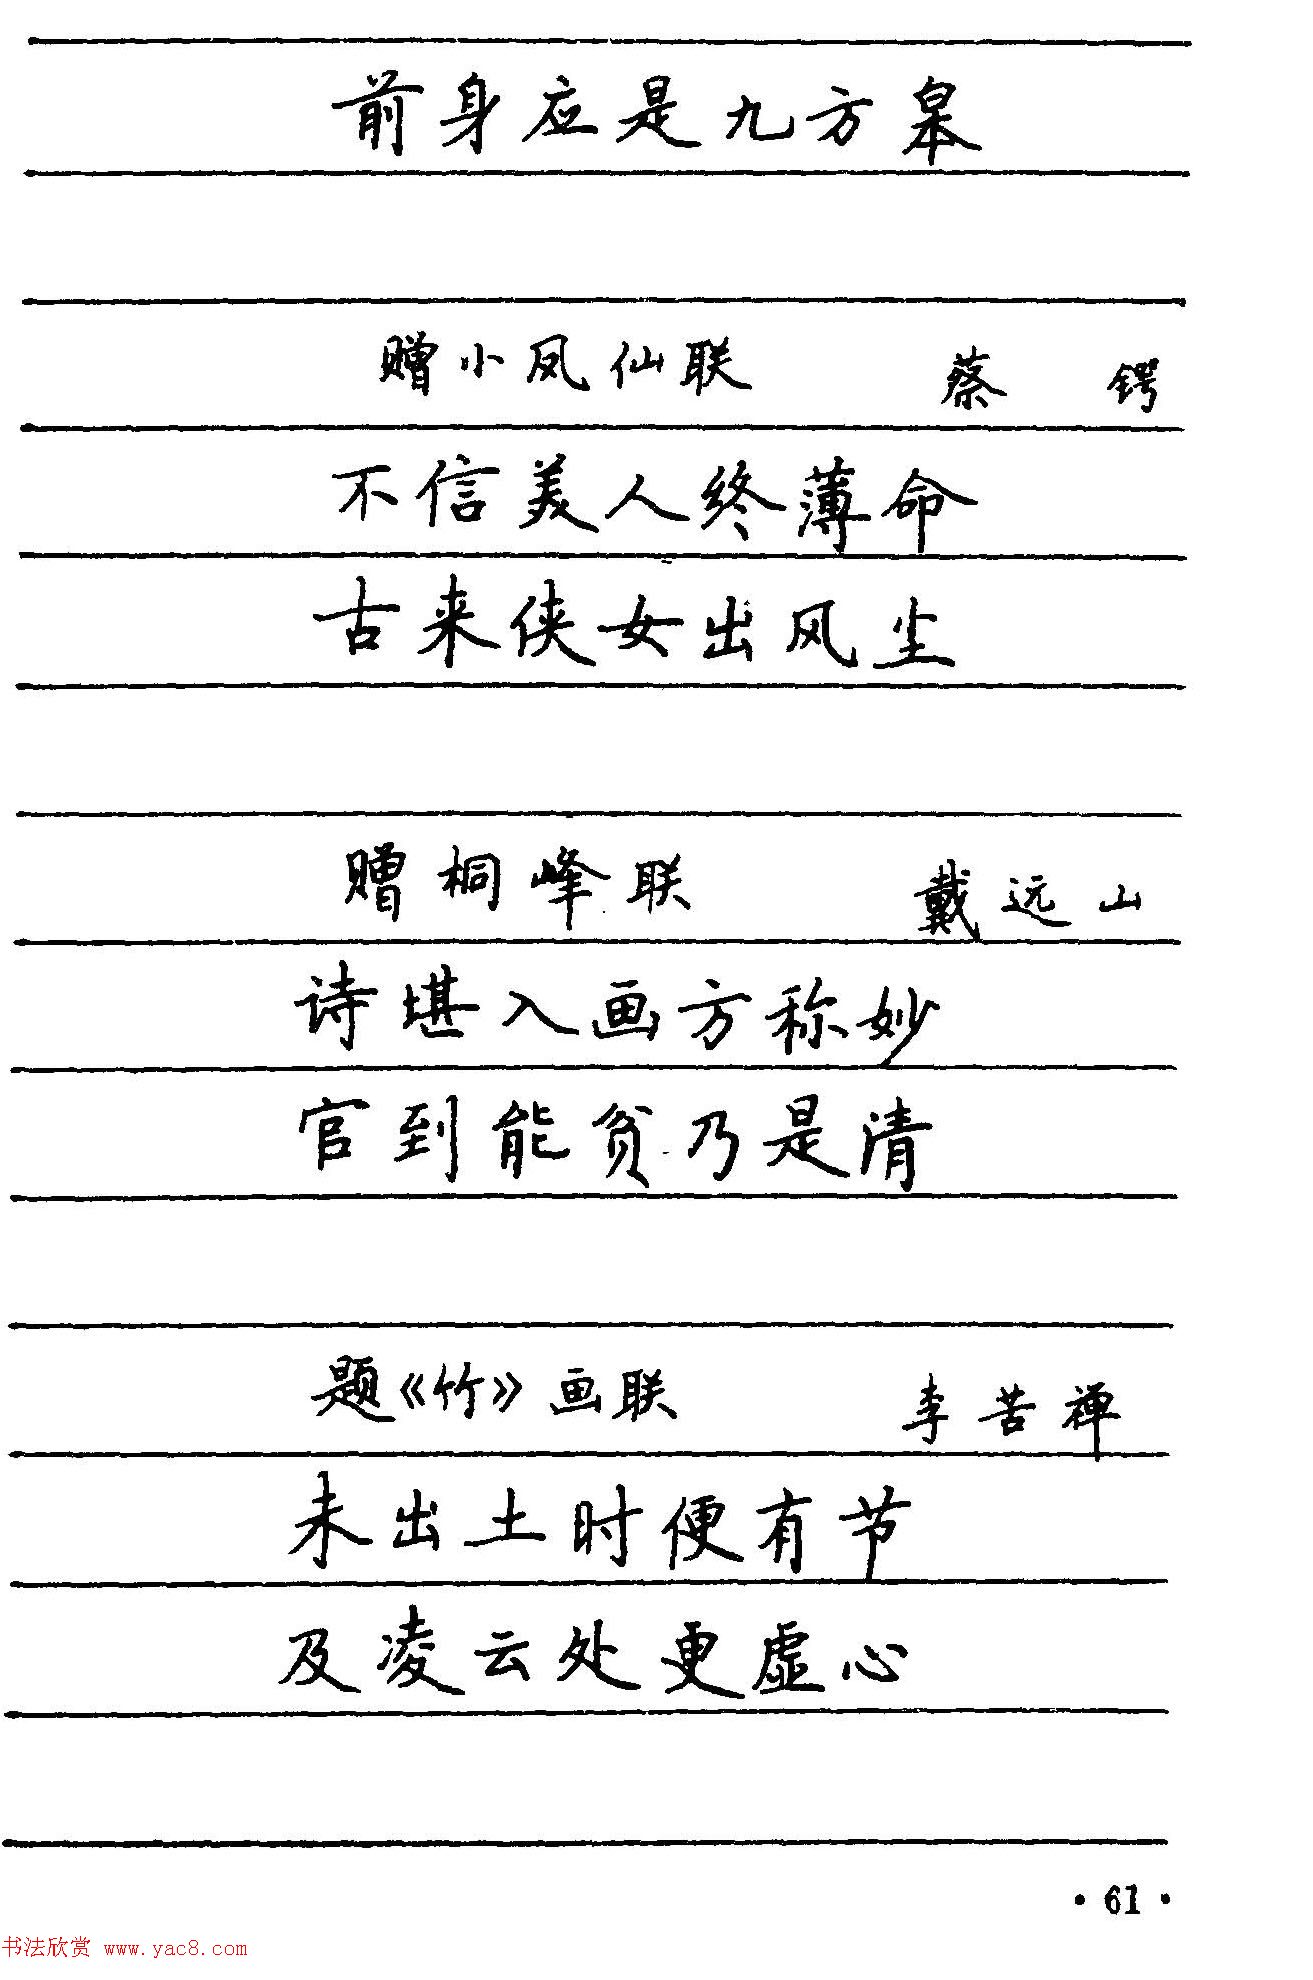 前身应是九方皋
赠小凤仙联 蔡 锷
不信美人终薄命
古来侠女出风尘
赠桐峰联 戴远山
诗堪入画方称妙
官到能贫乃是清
题《竹》画联 李苦禅
未出土时便有节
及凌云处更虚心
·61·
书法欣赏 www.yac8.com